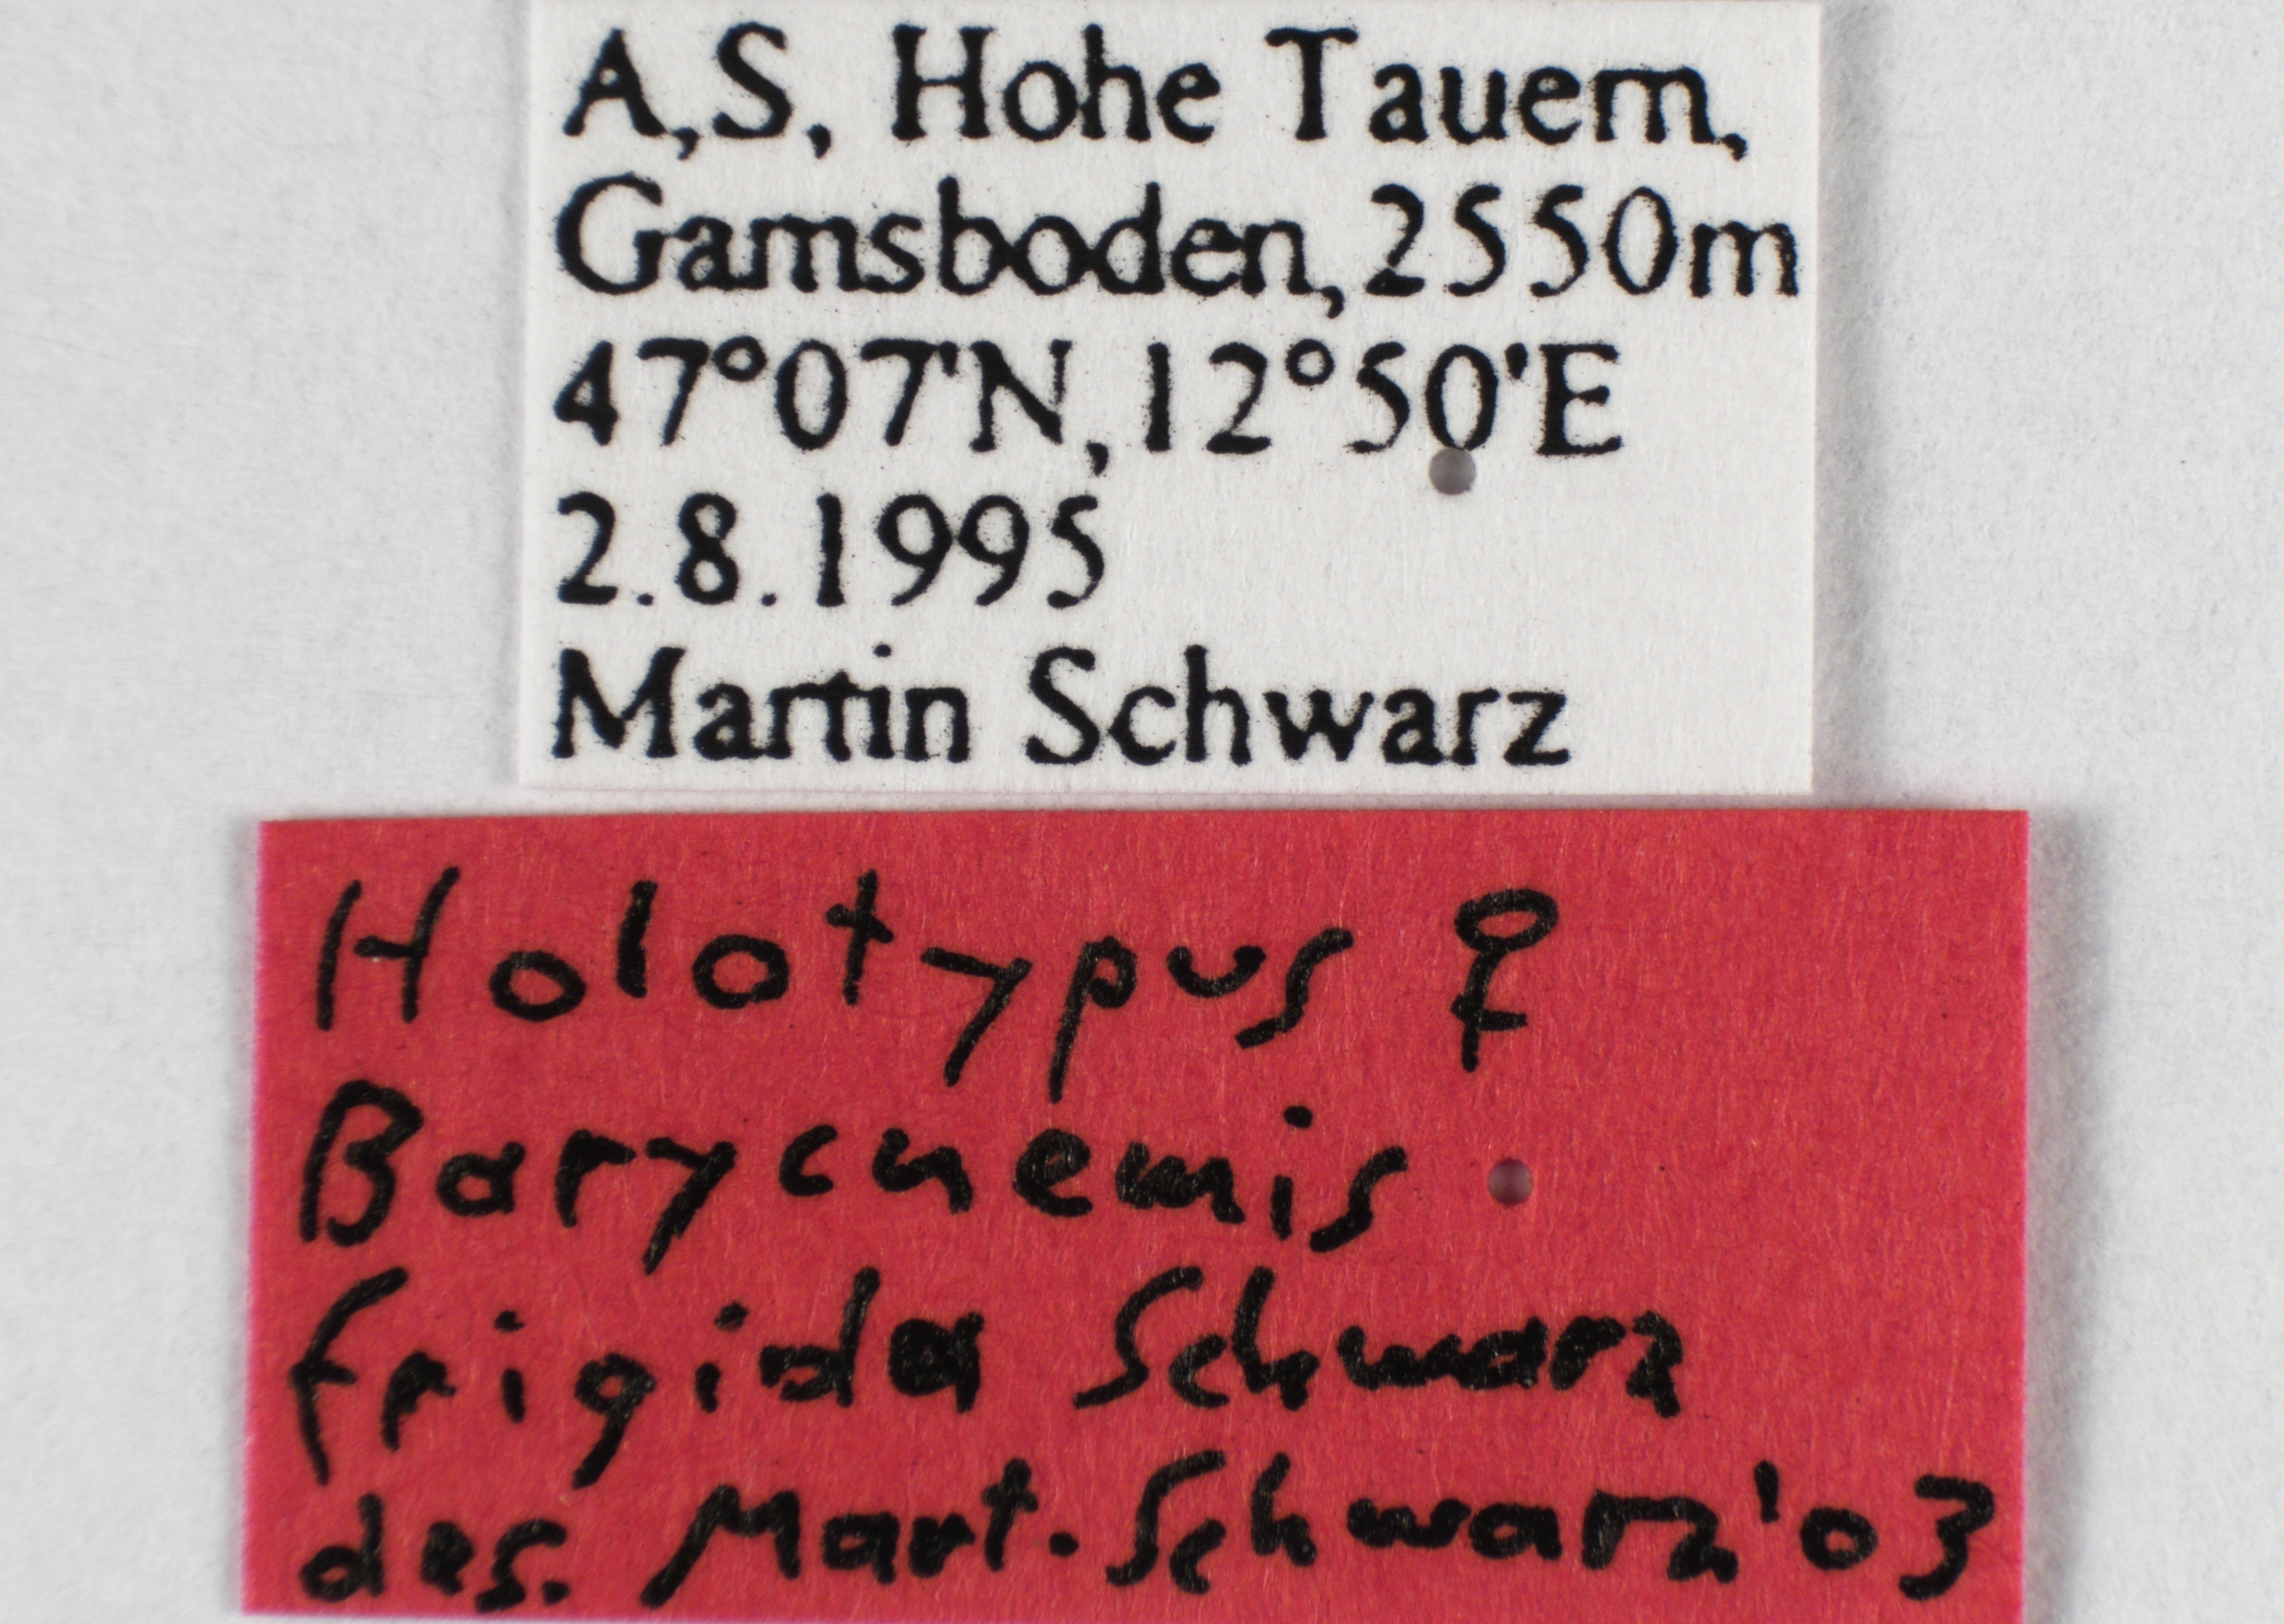 A,S, Hohe Tauern,
Gamsboden,2550m
47°07'N,12°50'E
2.8.1995
Martin Schwarz
Holotypus ♀
Barycnemis
frigida Schwarz
des. Mart. Schwarz '03